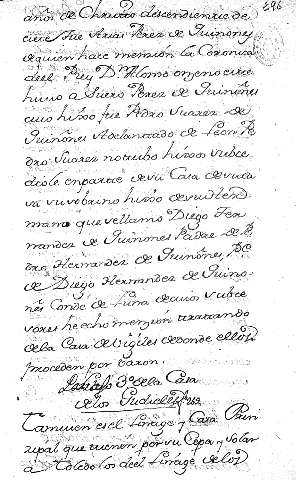 296
años de Chavarro descendiente de
este fue Arias Perez de Quiñones
de quien hace mension la Coronica
del Rey D. Alonso onzeno este
huvo a Suero Perez de Quiñones
cuio hixo fue Pedro Suarez de
Quiñones Adelantado de Leon Pe
dro Suarez no tubo hixos subce
diole en parte de su Casa de
su sobrino hixo de su Her
mana que se llamo Diego Fer
nandez de Quiñones Padre de P
dro Hernandez de Quiñones, P.e
de Diego Hernandez de Quiño-
nes Conde de Luna de cuios subce
sores he echo menzion tratando
de la Casa de Vigiles de donde ellos
proceden por varon.
3º de la Casa
de los
Tamvien es el Linage y Casa Prin
zipal que tienen por su Cepa y solar
a Toledo los del Linage de los